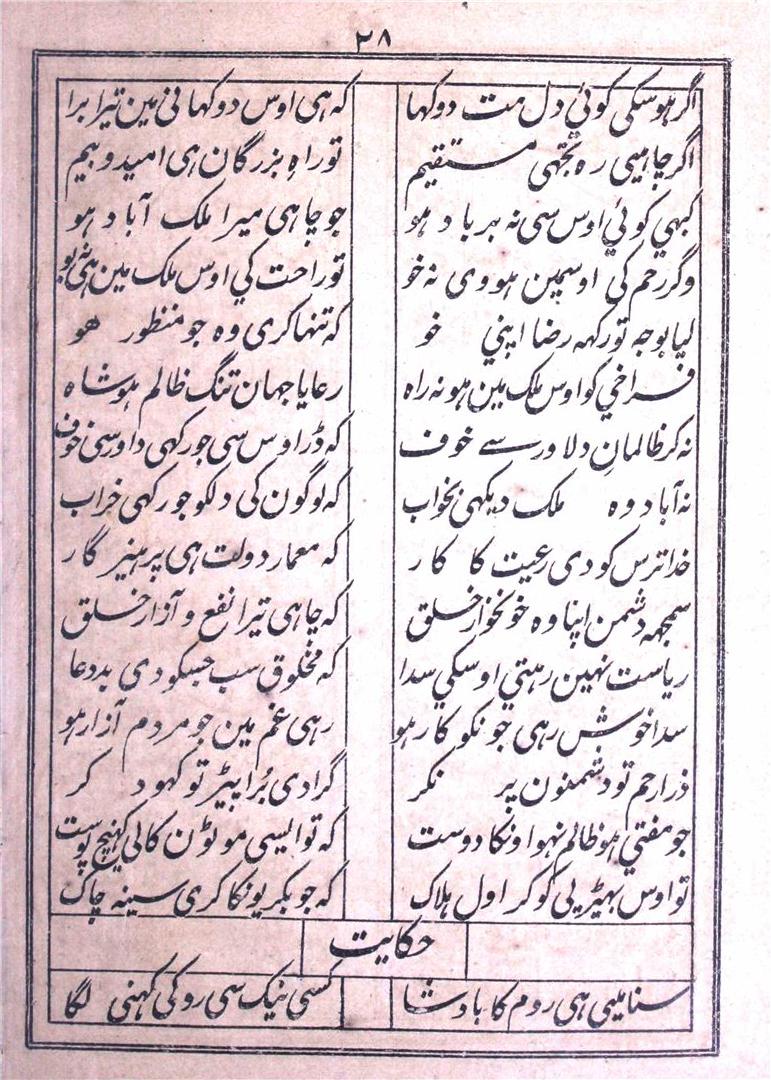 ٢٨
اگر ہو سکی کوئي دل مت دوکہا کہ ہی اوس دوکہانی مین تیرا برا
اگر چاہیی رہ تجھی مستقیم تو راہِ بزرگان ہی امید و بیم
کبہي کوئي اوس سی نہ برباد ہو جو چاہی میرا ملک آباد ہو
وگر رحم کی اوسمین ہووی نہ خو تو راحت کي اوس ملک مین
لیا بوجہ تو رکہہ رضا اپنی خو کہ تنہا کری وہ جو منظور ھو
فراخي کو اوس ملک مین ہو نہ راہ رعایا جہان تنگ ظالم ہو شاہ
نہ کر ظالمانِ دلاور سے خوف کہ ڈر اوس سی جو رکہی داور سی خوف
نہ آباد وہ ملک دیکہی بخواب کہ لوگون کی دلکو جو رکہی خراب
خدا ترس کو دی رعیت کا کار کہ معمار دولت ہی پرہیز گار
سمجہہ دشمن اپنا وہ خونخوار خلق کہ چاہی تیرا نفع و آزار خلق
ریاست نہین رہتي اوسکي سدا کہ مخلوق سب جسکو دی بددعا
سدا خوش رہی جو نکو کار ہو رہی غم مین جو مردم آزار ہو
ذرا رحم تو دشمنون پر نکر گرا دی بُرا پیڑ تو کہود کر
جو مفتي ہو ظالم نہو اونکا دوست کہ تو ایسی موٹون کا لی کہینچ پوست
تو اوس بہیڑیی کو کر اول ہلاک کہ جو بکریونکا کری سینہ چاک
حکایت
سنا میی ہی روم کا بادشا کسی نیک سی رو کی کہنی لگا